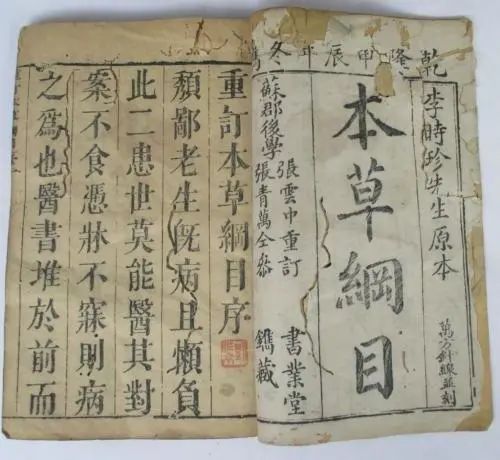 乾隆甲辰年冬
李時珍先生原本
萬方針線並刻
本草綱目
張雲中重訂
蘇郡後學
張青萬仝參
書業堂
鐫藏
重訂本草綱目序
頽鄙老生旣病且懶負
此二患世莫能醫其對
案不食憑牀不寐則病
之爲也醫書堆於前而